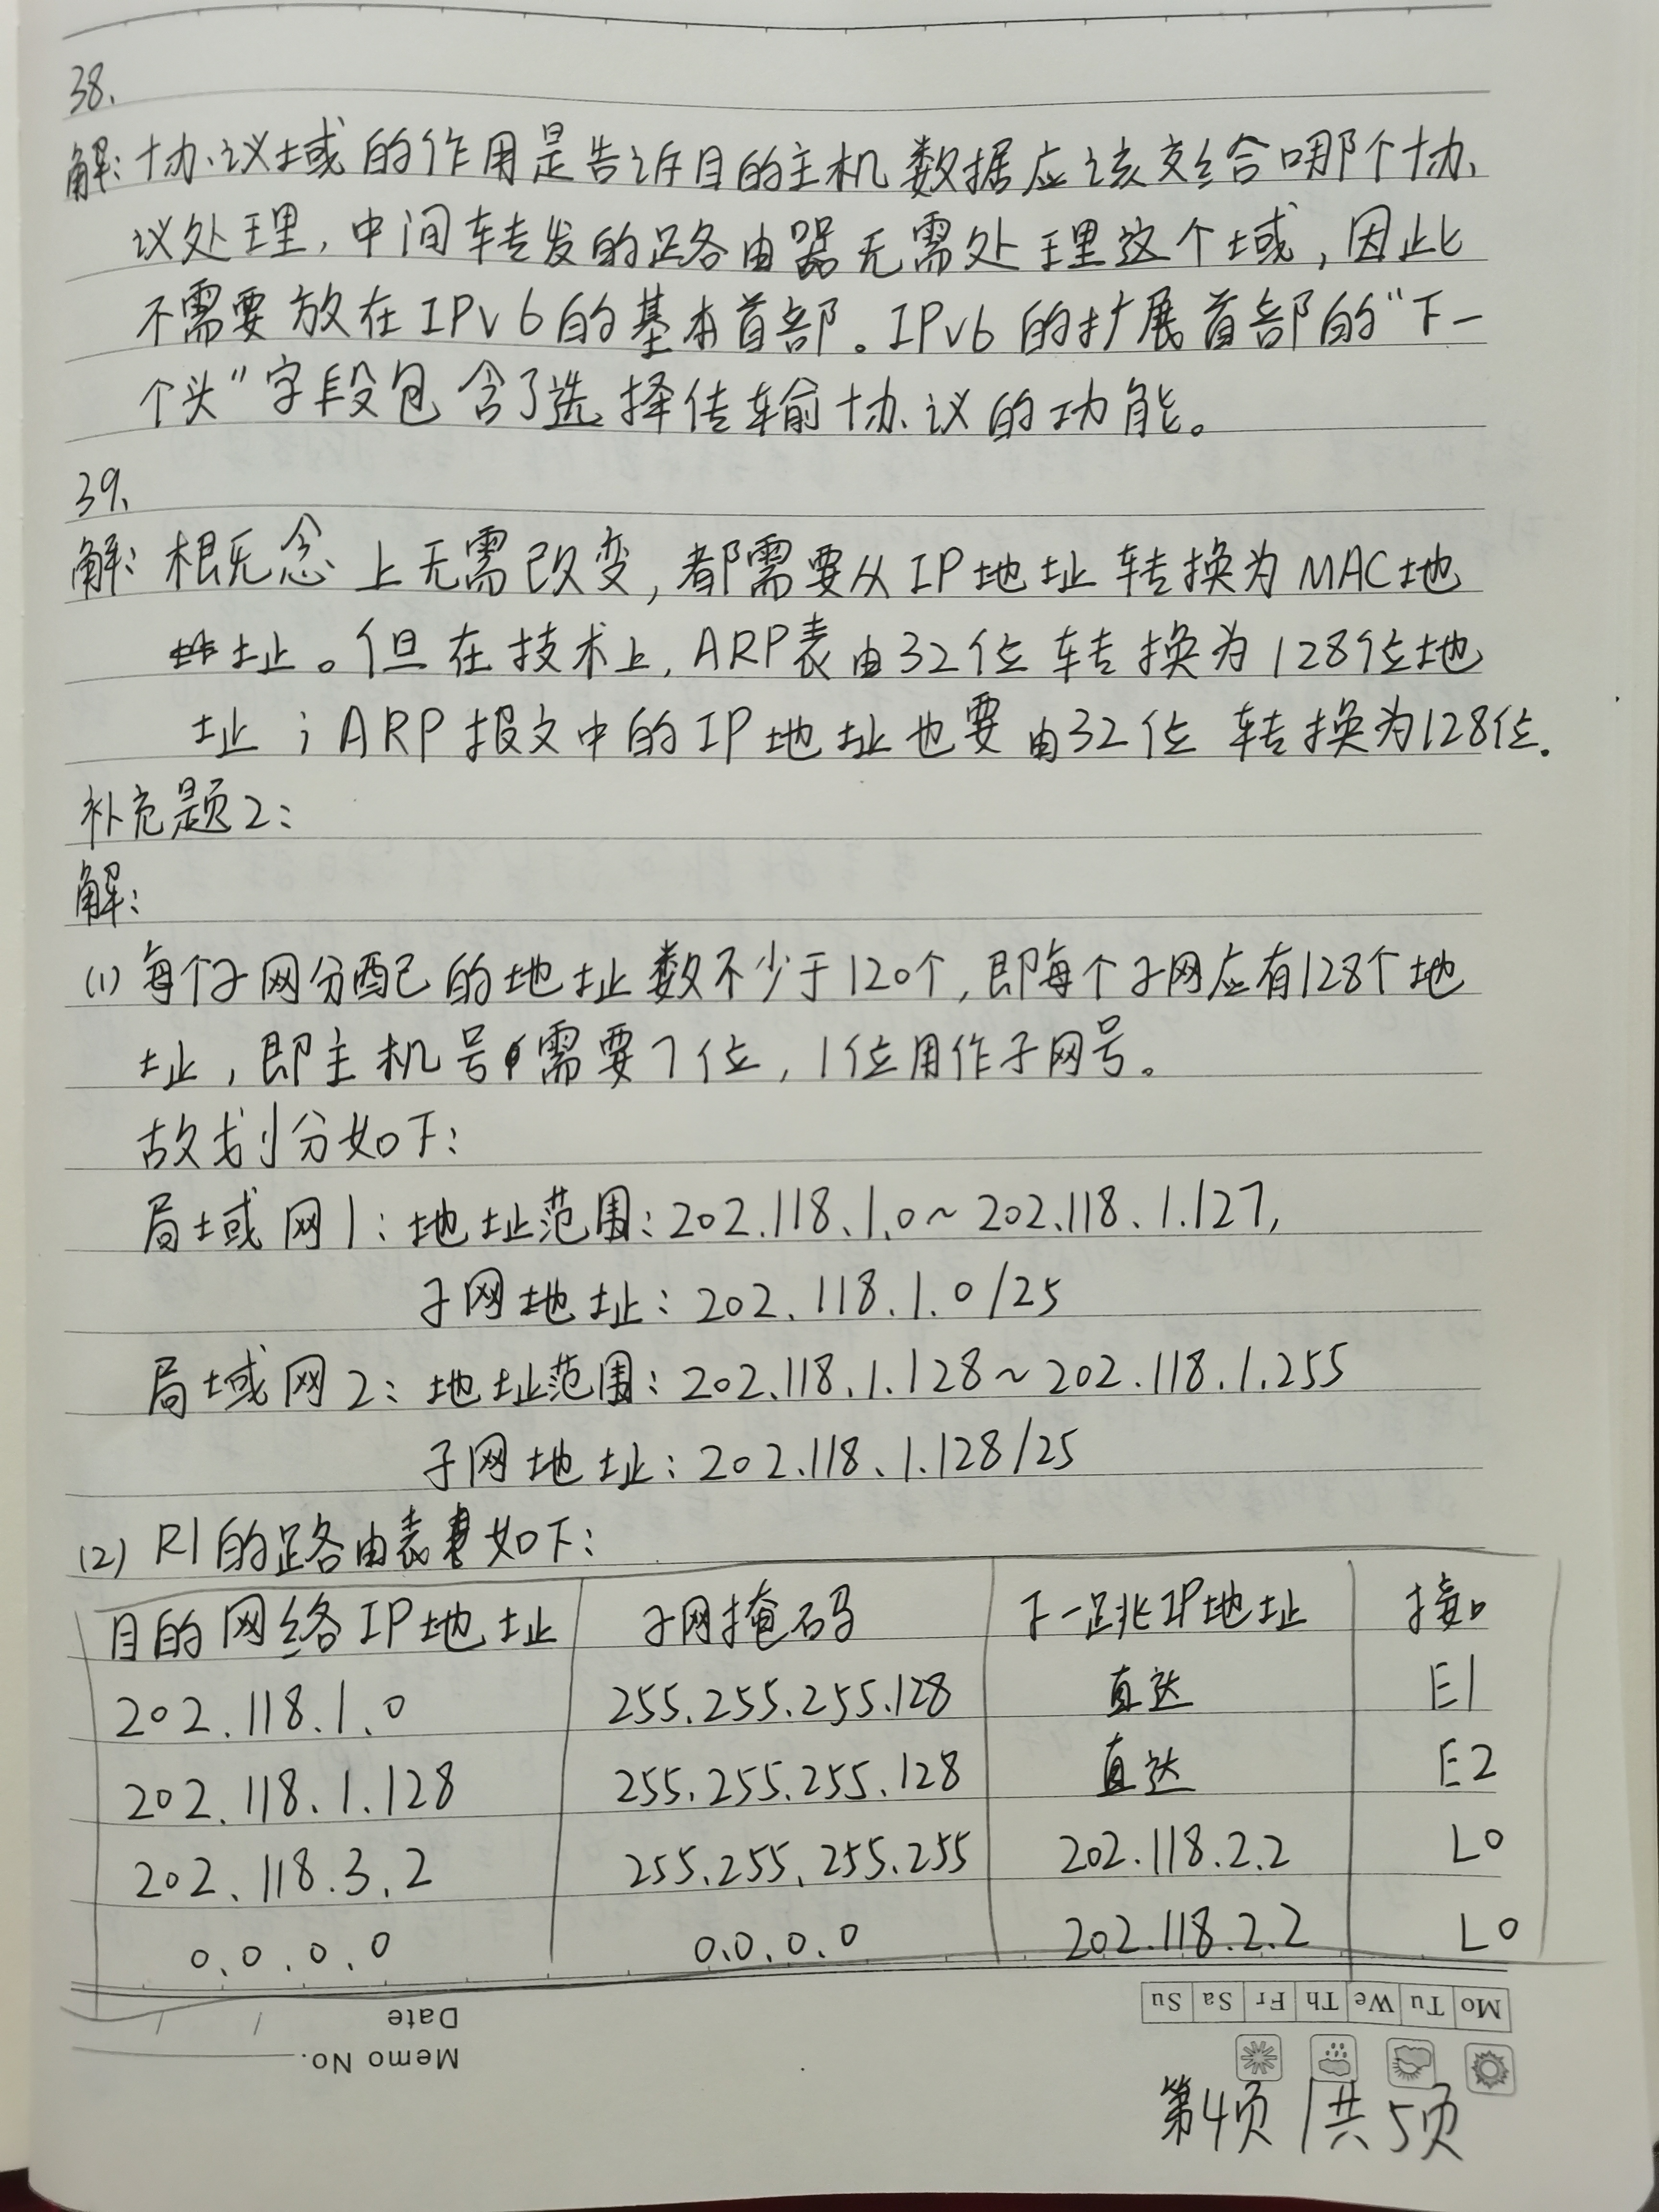 38.
解:协议域的作用是告诉目的主机数据应该交给哪个协
议处理,中间转发的路由器无需处理这个域,因此
不需要放在IPv6的基本首部。IPv6的扩展首部的“下一
个头”字段包含了选择传输协议的功能。
39.
解:概念上无需改变,都需要从IP地址转换为MAC地
址。但在技术上,ARP表由32位转换为128位地
址;ARP报文中的IP地址也要由32位转换为128位.
补充题2:
解:
(1)每个子网分配的地址数不少于120个,即每个子网应有128个地
址,即主机号需要7位,1位用作子网号。
故划分如下:
局域网1:地址范围:202.118.1.0~202.118.1.127,
子网地址:202.118.1.0/25
局域网2:地址范围:202.118.1.128~202.118.1.255
子网地址:202.118.1.128/25
(2)R1的路由表如下:
目的网络IP地址 子网掩码 下一跳IP地址 接口
202.118.1.0 255.255.255.128 直达 E1
202.118.1.128 255.255.255.128 直达 E2
202.118.3.2 255.255.255.255 202.118.2.2 L0
0.0.0.0 0.0.0.0 202.118.2.2 L0
Mo Tu We Th Fr Sa Su
Date / /
Memo No.
第4页/共5页